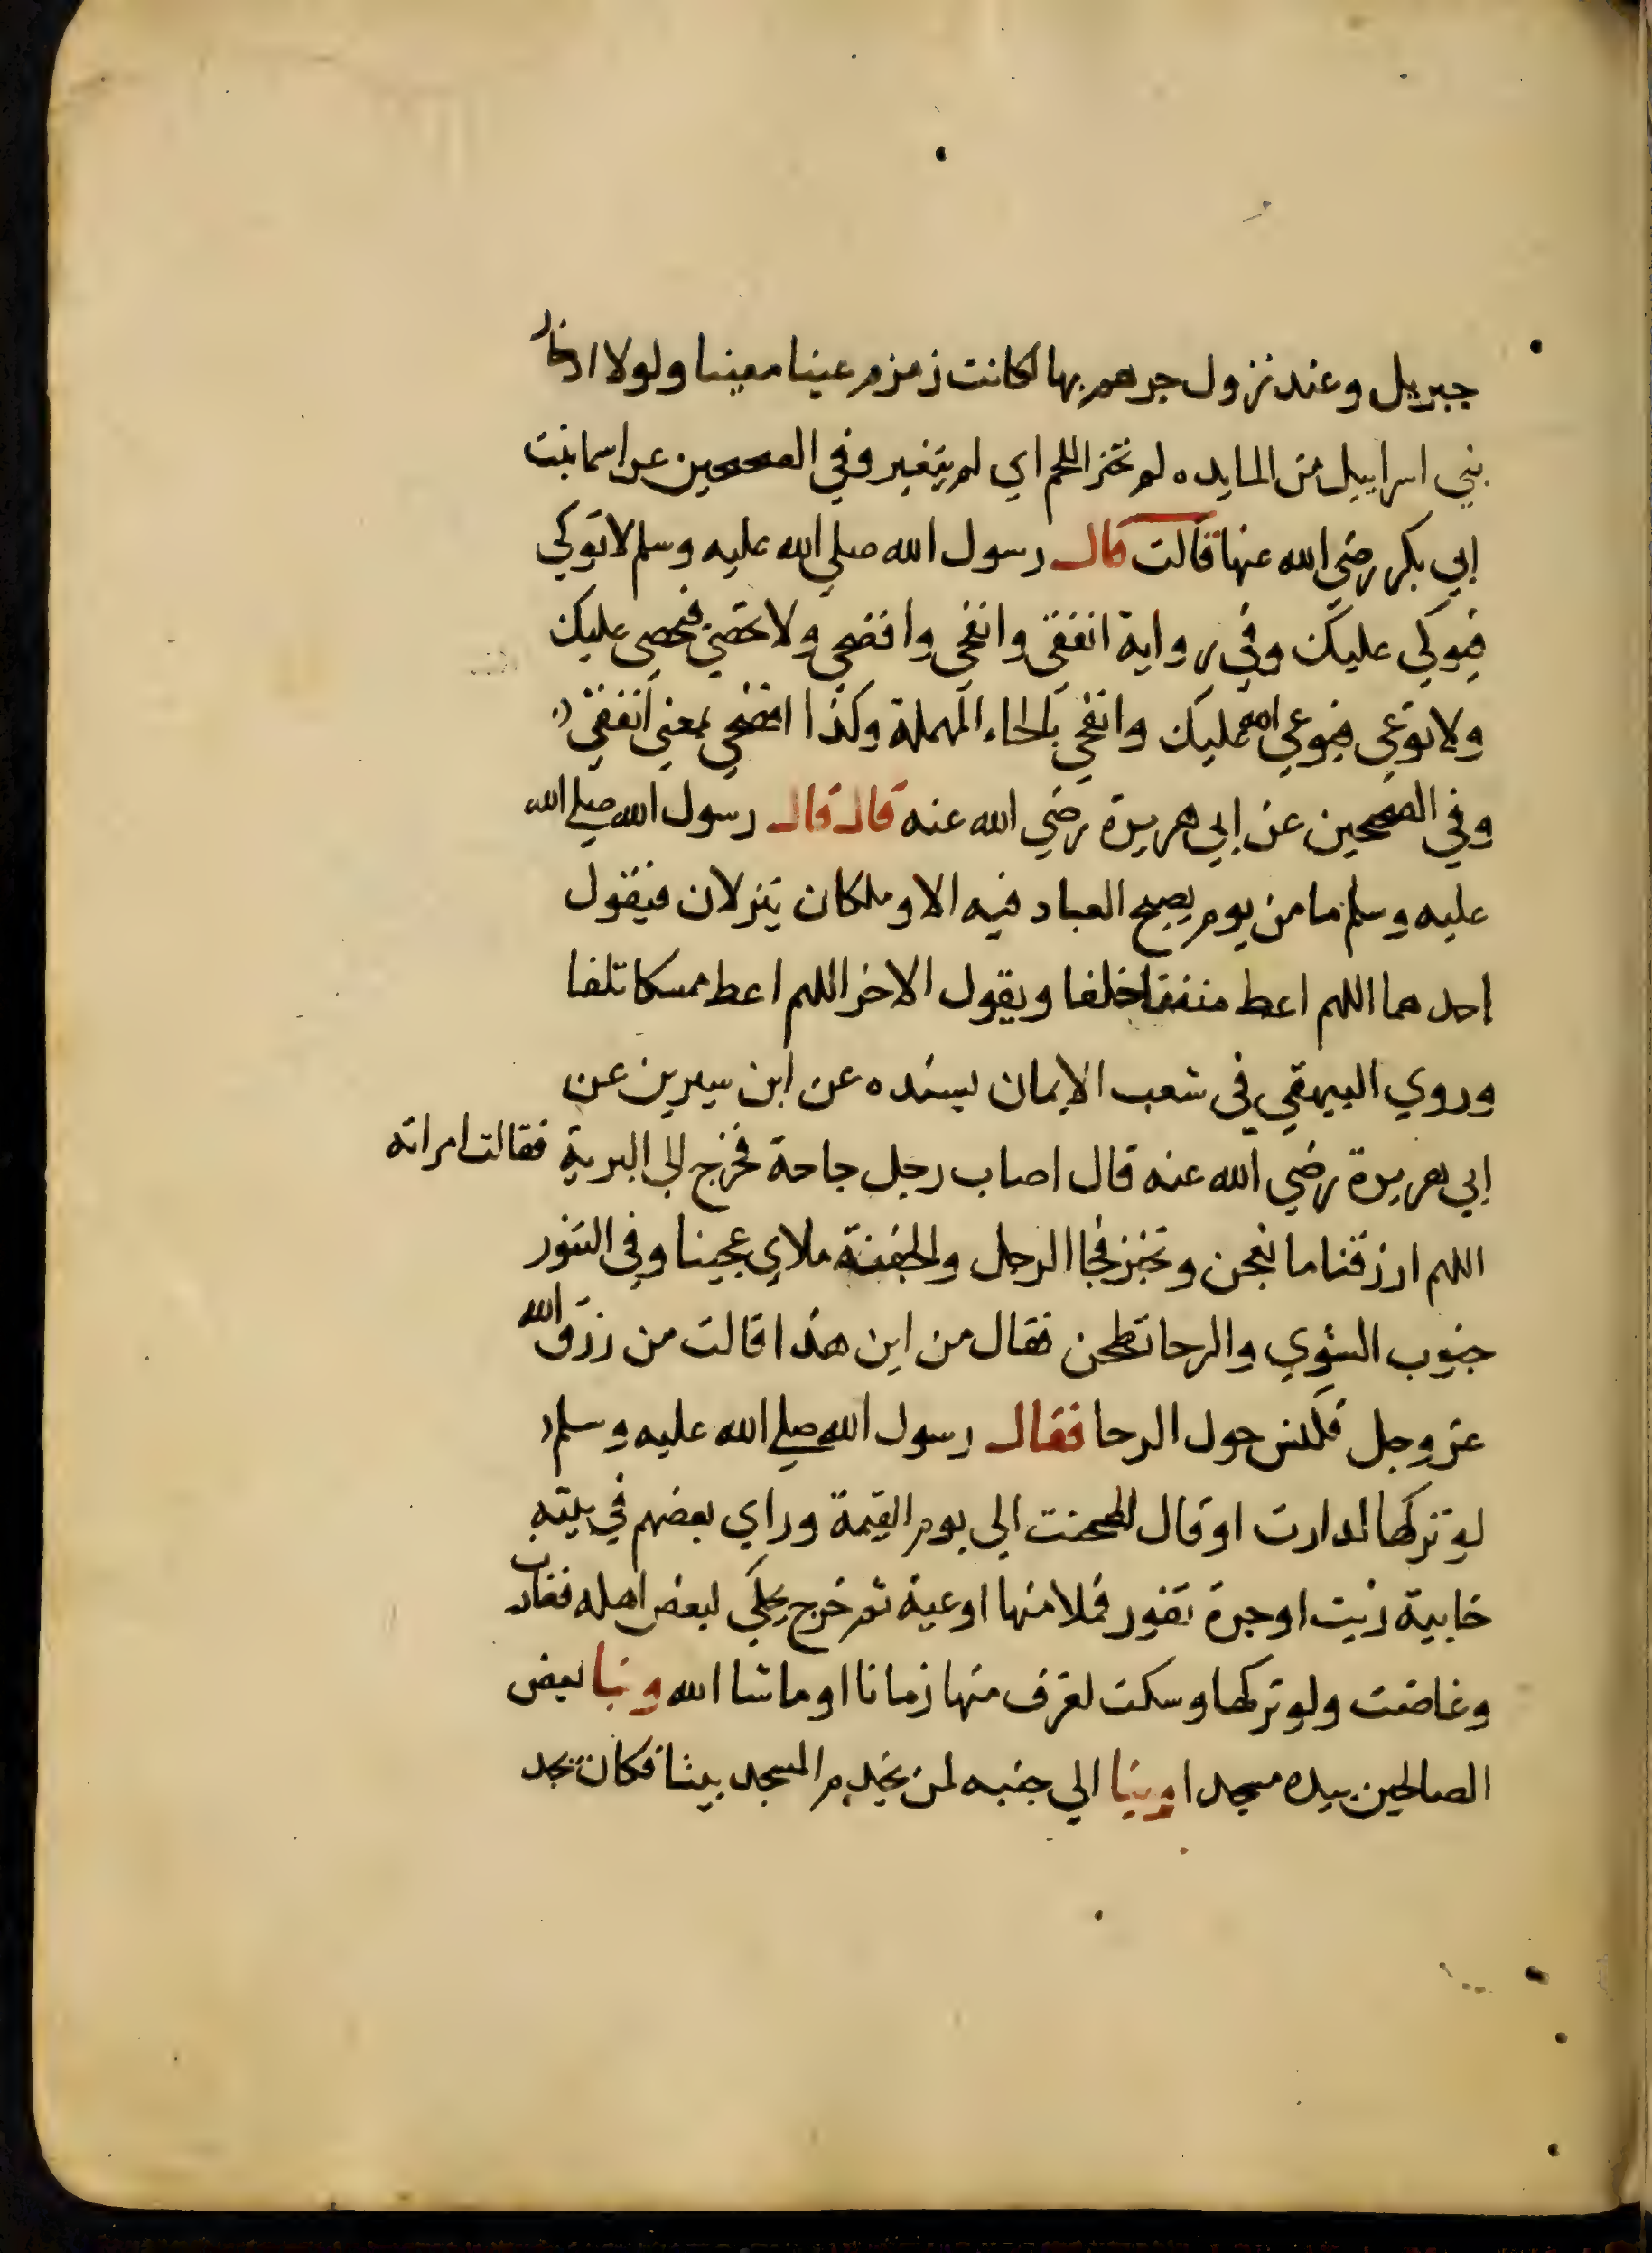 جبريل وعند نزول جرهم بها لكانت زمزم عينا معينا ولولا ادخار
بني اسراييل من المايده لم تخنز اللحم اي لم يتغير وفي الصحيحين عن اسما بنت
ابي بكر رضي الله عنها قالت قال رسول الله صلي الله عليه وسلم لا توكي
فيوكي عليك وفي رواية انفقي وانفحي وانضحي ولا تحصي فيحصي عليك
ولا توعي فيوعي الله عليك وانفحي بالحاء المهملة وكذا انضحي بمعني انفقي
وفي الصحيحين عن ابي هريرة رضي الله عنه قال قال رسول الله صلي الله
عليه وسلم ما من يوم يصبح العباد فيه الا وملكان ينزلان فيقول
احدهما اللهم اعط منفقا خلفا ويقول الاخر اللهم اعط ممسكا تلفا
وروي البيهقي في شعب الايمان بسنده عن ابن سيرين عن
ابي هريرة رضي الله عنه قال اصاب رجل جاحة فخرج الي البرية فقالت امراته
اللهم ارزقنا ما نعجن ونخبز فجا الرجل والجفنة ملاي عجينا وفي التنور
جنوب الشوي والرحا تطحن فقال من اين هذا قالت من رزق الله
عز وجل فكنس حول الرحا فقال رسول الله صلي الله عليه وسلم
لو تركها لدارت او قال لطحنت الي يوم القيمة وراي بعضهم في بيته
خابية زيت او جرة تفور فملا منها اوعية ثم خرج يحكي لبعض اهله فغارت
وغاضت ولو تركها وسكت لغرف منها زمانا او ما شا الله وبنا بعض
الصالحين بيده مسجدا وبنا الي جنبه لمن يخدم المسجد بيتا فكان يجد